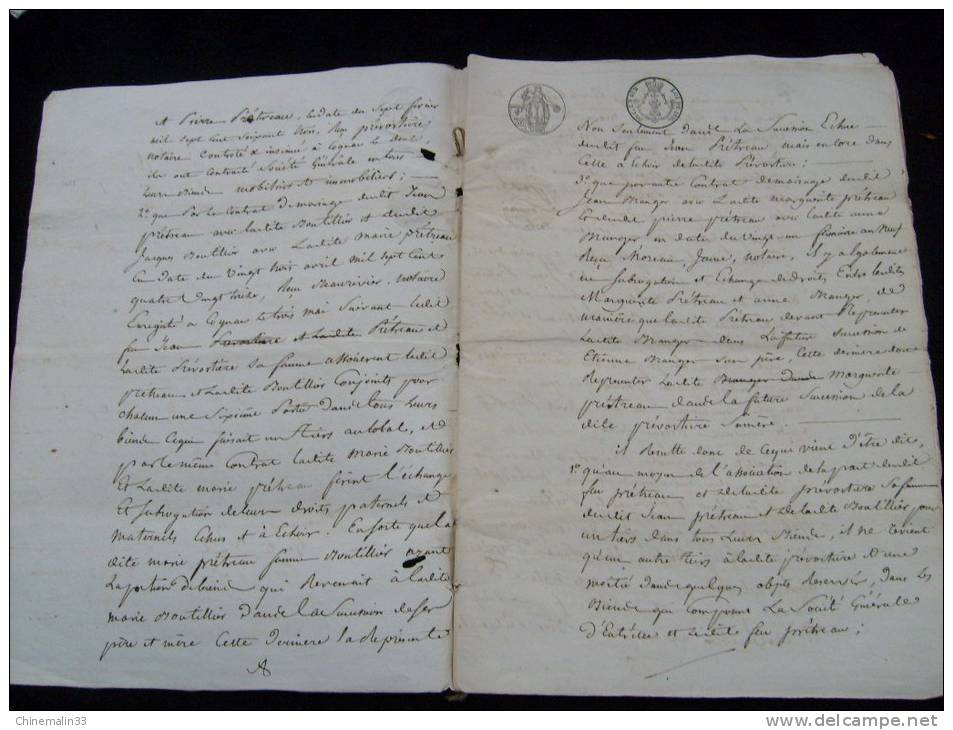 A Pierre Prétreau, en date du sept février
mil sept cent soixante trois, Reçu prévostiere
notaire contrôlé & insinué à Cognac le
ils ont contracté Société Générale en tous
Leurs Biens mobiliers & immobiliers; —
2° que Par le Contrat de mariage dudit Jean
prétreau avec ladite Boutillier et dudit
Jacques Boutillier avec Ladite Marie prétreau
En date du vingt trois avril mil sept cent
quatre vingt treize, Reçu notaire
Enregistré à Cognac le trois mai Suivant ledit
feu Jean Prévostiere et Ladite Prétreau et
Ladite Prévostiere Sa femme associerent ledit
prétreau et Ladite Boutillier Conjoints pour
chacun une Sixième Partie dans tous Leurs
biens Ce qui faisait un tiers au total, et
par le même Contrat Ladite marie Boutillier
Et Ladite marie prétreau firent l'échange
et Subrogation de leurs droits paternels et
maternels Echus et à Echoir. En sorte que la
dite marie prétreau femme Boutillier ayant
La portion de biens qui Revenait à Ladite
marie Boutillier dans la Succession de ses
père et mère Cette dernière la Représente
Non Seulement dans La Succession Echue
dudit feu Jean Prétreau mais encore dans
Celle à Echoir de ladite Prévostiere; —
3° que par autre Contrat de mariage dudit
Jean Manger avec Ladite marguerite prétreau
Et dudit pierre prétreau avec Ladite anne
Manger en date du vingt un frimaire an neuf
Reçu Moreau, Jeune, notaire, il y a également
eu Subrogation et Echange de droits Entre lesdites
Marguerite Prétreau et anne Manger, de
manière que Ladite Prétreau devant Représenter
Ladite Manger dans La future Succession de
Etienne Manger Son père, Cette dernière doit
Représenter Ladite Manger dans Marguerite
prétreau dans la future Succession de la
dite prévostiere Sa mère. —
il Résulte donc de Ce qui vient d'être dit,
1° qu'au moyen de l'association de la part dudit
feu prétreau et de ladite prévostiere Sa femme
dudit Jean prétreau et de ladite Boutillier pour
un tiers dans tous Leurs Biens, il ne revient
qu'un autre tiers à ladite prévostiere et une
moitié dans quelques objets Réservés, dans les
Biens que Comprend La Société Générale
d'Entr'elle et Ledit feu prétreau;
Chinemalin33
www.delcampe.net